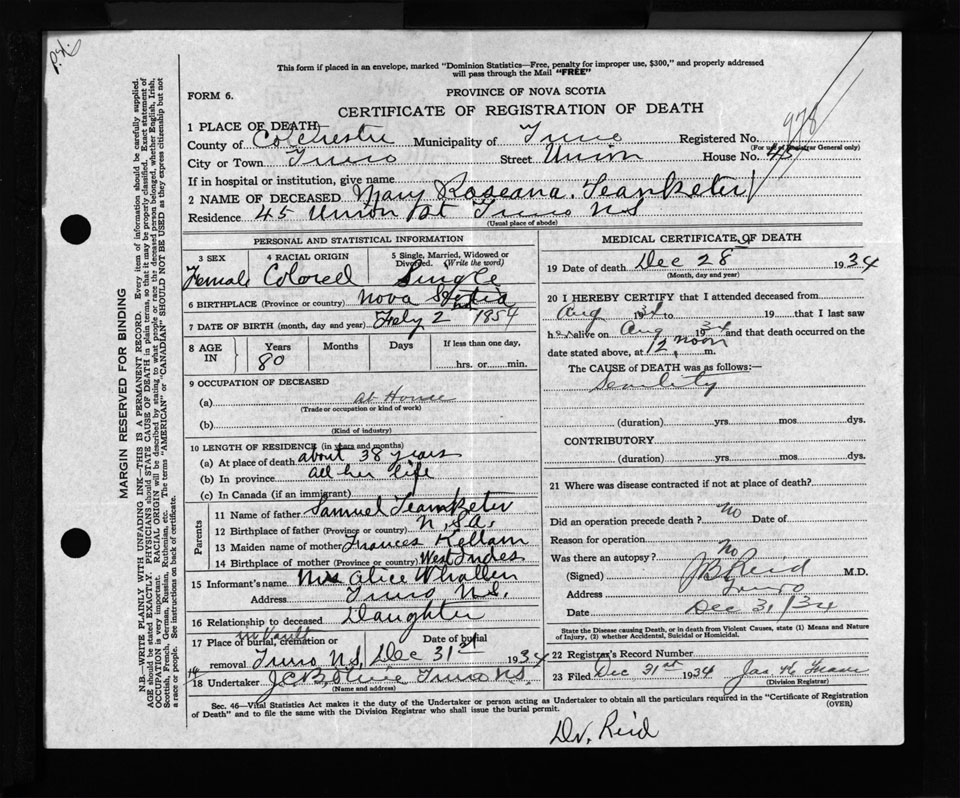 P.H.
This form if placed in an envelope, marked "Dominion Statistics—Free, penalty for improper use, $300," and properly addressed
will pass through the Mail "FREE"
FORM 6.
PROVINCE OF NOVA SCOTIA
CERTIFICATE OF REGISTRATION OF DEATH
978
1 PLACE OF DEATH
County of Colchester Municipality of Truro Registered No.
(For use of Registrar General only)
City or Town Truro Street Union House No. 45
If in hospital or institution, give name
2 NAME OF DECEASED Mary Roseana
Residence 45 Union St Truro NS
(Usual place of abode)
PERSONAL AND STATISTICAL INFORMATION
3 SEX 4 RACIAL ORIGIN 5 Single, Married, Widowed or Divorced. (Write the word)
Female Colored Single
6 BIRTHPLACE (Province or country) Nova Scotia
7 DATE OF BIRTH (month, day and year) 2nd 1854
8 AGE IN Years Months Days If less than one day,
80 hrs. or min.
9 OCCUPATION OF DECEASED
(a) at House
(Trade or occupation or kind of work)
(b)
(Kind of industry)
10 LENGTH OF RESIDENCE (in years and months)
(a) At place of death about 38 years
(b) In province all her life
(c) In Canada (if an immigrant)
Parents
11 Name of father Samuel
12 Birthplace of father (Province or country) N.S.
13 Maiden name of mother Frances Kellam
14 Birthplace of mother (Province or country) West Indes
15 Informant's name Mrs Alice Whallen
Address Truro N.S.
16 Relationship to deceased Daughter
17 Place of burial, cremation or removal Date of burial
in Vault
Truro N.S, Dec 31st 1934
18 Undertaker Truro N.S.
(Name and address)
MEDICAL CERTIFICATE OF DEATH
19 Date of death Dec 28 1934
(Month, day and year)
20 I HEREBY CERTIFY that I attended deceased from
Aug 1934 to 19 that I last saw
h er alive on Aug 1934 and that death occurred on the
date stated above, at 12 noon m.
The CAUSE of DEATH was as follows:—
Senility
(duration) yrs. mos. dys.
CONTRIBUTORY
(duration) yrs. mos. dys.
21 Where was disease contracted if not at place of death?
Did an operation precede death? No Date of
Reason for operation
Was there an autopsy? No
(Signed) J B Reid M.D.
Address Truro
Date Dec 31/34
State the Disease causing Death, or in death from Violent Causes, state (1) Means and Nature
of Injury, (2) whether Accidental, Suicidal or Homicidal.
22 Registrar's Record Number
23 Filed Dec 31st 1934
(Division Registrar)
Sec. 46—Vital Statistics Act makes it the duty of the Undertaker or person acting as Undertaker to obtain all the particulars required in the "Certificate of Registration
of Death" and to file the same with the Division Registrar who shall issue the burial permit.
(OVER)
Dr. Reid
MARGIN RESERVED FOR BINDING
N.B.—WRITE PLAINLY WITH UNFADING INK—THIS IS A PERMANENT RECORD. Every item of information should be carefully supplied.
AGE should be stated EXACTLY. PHYSICIANS should STATE CAUSE OF DEATH in plain terms, so that it may be properly classified. Exact statement of
OCCUPATION is very important. RACIAL ORIGIN will be described by stating to what people or race the deceased person belonged, whether English, Irish,
Scottish, French, German, Russian, Ruthenian, etc. The terms "AMERICAN" or "CANADIAN" SHOULD NOT BE USED as they express citizenship but not
a race or people. See instructions on back of certificate.